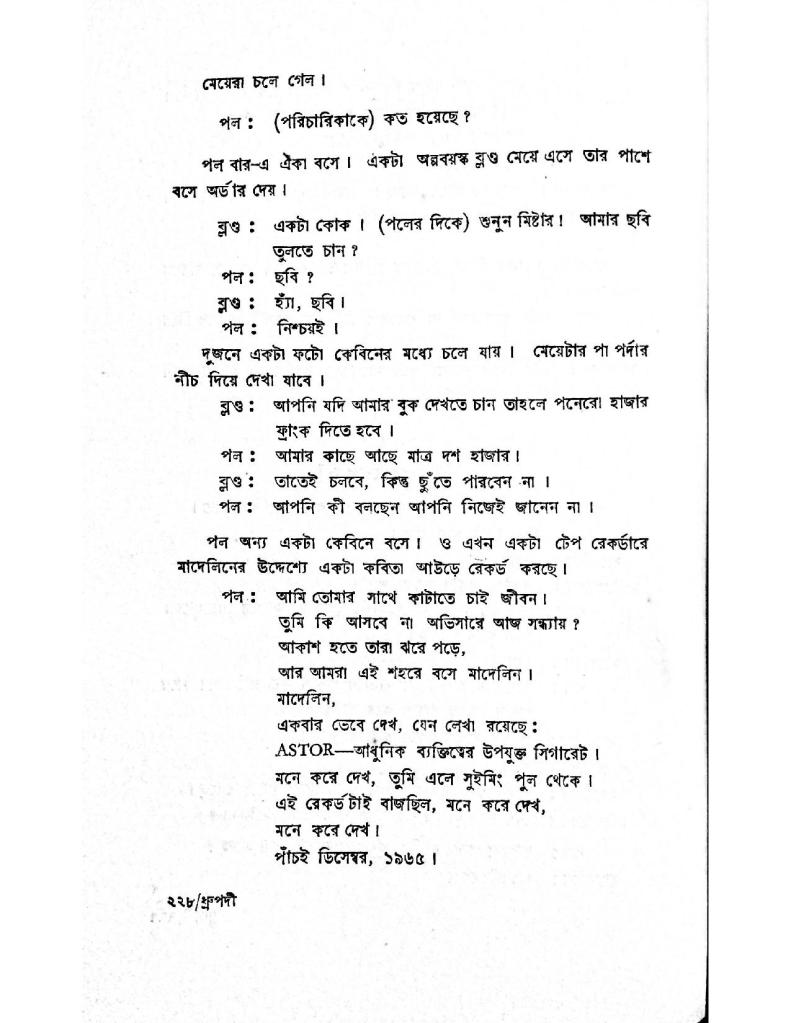 মেয়েরা চলে গেল।
পল : (পরিচারিকাকে) কত হয়েছে ?
পল বার-এ ঐকা বসে। একটা অল্পবয়স্ক ব্লণ্ড মেয়ে এসে তার পাশে
বসে অর্ডার দেয়।
ব্লণ্ড : একটা কোক। (পলের দিকে) শুনুন মিষ্টার! আমার ছবি
তুলতে চান ?
পল : ছবি ?
ব্লণ্ড : হ্যাঁ, ছবি।
পল : নিশ্চয়ই।
দুজনে একটা ফটো কেবিনের মধ্যে চলে যায়। মেয়েটার পা পর্দার
নীচ দিয়ে দেখা যাবে।
ব্লণ্ড : আপনি যদি আমার বুক দেখতে চান তাহলে পনেরো হাজার
ফ্রাংক দিতে হবে।
পল : আমার কাছে আছে মাত্র দশ হাজার।
ব্লণ্ড : তাতেই চলবে, কিন্তু ছুঁতে পারবেন না।
পল : আপনি কী বলছেন আপনি নিজেই জানেন না।
পল অন্য একটা কেবিনে বসে। ও এখন একটা টেপ রেকর্ডারে
মাদেলিনের উদ্দেশ্যে একটা কবিতা আউড়ে রেকর্ড করছে।
পল : আমি তোমার সাথে কাটাতে চাই জীবন।
তুমি কি আসবে না অভিসারে আজ সন্ধ্যায় ?
আকাশ হতে তারা ঝরে পড়ে,
আর আমরা এই শহরে বসে মাদেলিন।
মাদেলিন,
একবার ভেবে দেখ, যেন লেখা রয়েছে :
ASTOR—আধুনিক ব্যক্তিত্বের উপযুক্ত সিগারেট।
মনে করে দেখ, তুমি এলে সুইমিং পুল থেকে।
এই রেকর্ডটাই বাজছিল, মনে করে দেখ,
মনে করে দেখ।
পাঁচই ডিসেম্বর, ১৯৬৫।
২২৮/ধ্রুপদী